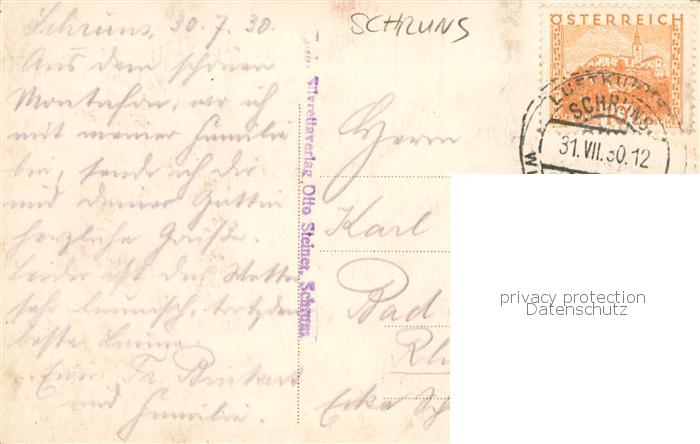 Schruns, 30.7.30.
Aus dem schönen
Montafon, wo ich
mit meiner Familie
bin, sende ich dir
und deiner Gattin
herzliche Grüße.
Leider ist das Wetter
sehr launisch, trotzdem
beste Laune.
Euer Fr.
und Familie.
SCHRUNS
Silvrettaverlag Otto Steiner, Schruns
Herrn
Karl
Bad
Rh
Ecke Sch
ÖSTERREICH
LUFTKURORT
SCHRUNS
31.VII.30.12
privacy protection
Datenschutz